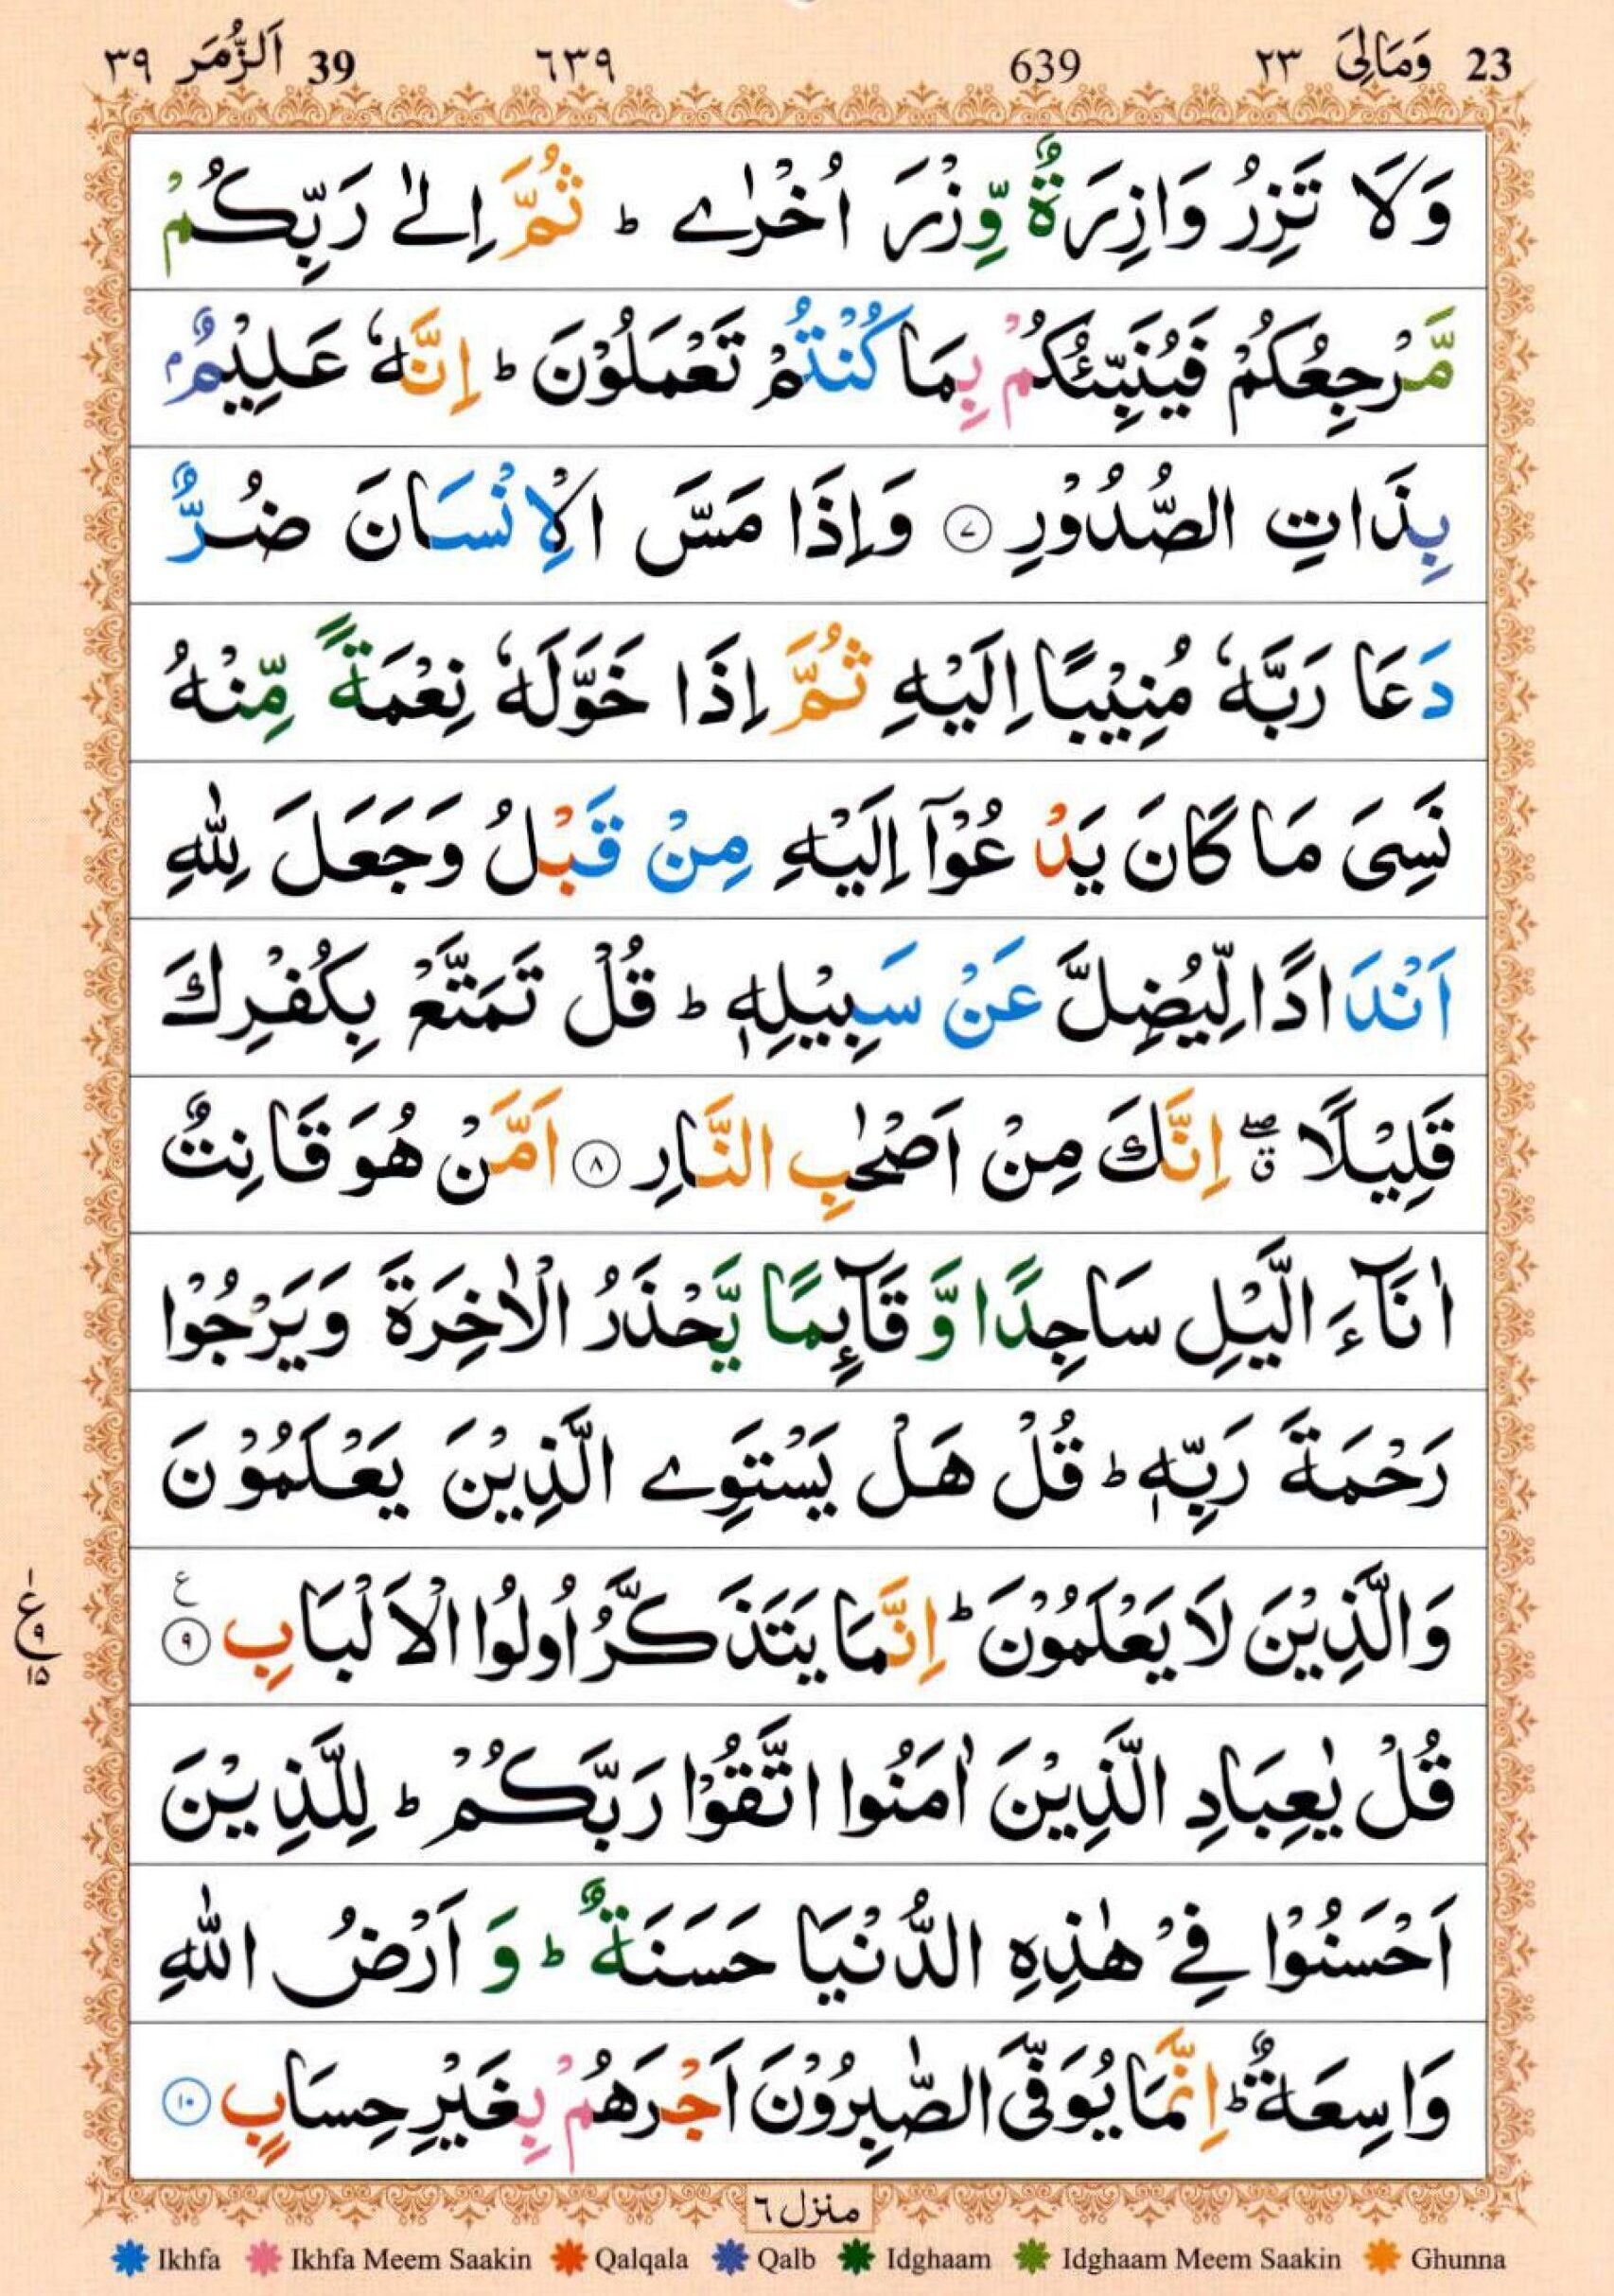 23 وَمَالِیَ ٢٣ 639 ٦٣٩ 39 اَلزُّمَر ٣٩
وَلَا تَزِرُ وَازِرَةٌ وِّزْرَ اُخْرٰے ؕ ثُمَّ اِلٰے رَبِّكُمْ
مَّرْجِعُكُمْ فَيُنَبِّئُكُمْ بِمَا كُنْتُمْ تَعْمَلُوْنَ ؕ اِنَّهٗ عَلِيْمٌۢ
بِذَاتِ الصُّدُوْرِ ۷ وَاِذَا مَسَّ الْاِنْسَانَ ضُرٌّ
دَعَا رَبَّهٗ مُنِيْبًا اِلَيْهِ ثُمَّ اِذَا خَوَّلَهٗ نِعْمَةً مِّنْهُ
نَسِیَ مَا كَانَ يَدْعُوْٓا اِلَيْهِ مِنْ قَبْلُ وَجَعَلَ لِلّٰهِ
اَنْدَادًا لِّيُضِلَّ عَنْ سَبِيْلِهٖ ؕ قُلْ تَمَتَّعْ بِكُفْرِكَ
قَلِيْلًا ۖق اِنَّكَ مِنْ اَصْحٰبِ النَّارِ ۸ اَمَّنْ هُوَ قَانِتٌ
اٰنَآءَ الَّيْلِ سَاجِدًا وَّ قَآئِمًا يَّحْذَرُ الْاٰخِرَةَ وَيَرْجُوْا
رَحْمَةَ رَبِّهٖ ؕ قُلْ هَلْ يَسْتَوِے الَّذِيْنَ يَعْلَمُوْنَ
وَالَّذِيْنَ لَا يَعْلَمُوْنَ ؕ اِنَّمَا يَتَذَكَّرُ اُولُوا الْاَلْبَابِ ۹ ع
١ ع ٩ ١٥
قُلْ يٰعِبَادِ الَّذِيْنَ اٰمَنُوا اتَّقُوْا رَبَّكُمْ ؕ لِلَّذِيْنَ
اَحْسَنُوْا فِیْ هٰذِهِ الدُّنْيَا حَسَنَةٌ ؕ وَ اَرْضُ اللّٰهِ
وَاسِعَةٌ ؕ اِنَّمَا يُوَفَّی الصّٰبِرُوْنَ اَجْرَهُمْ بِغَيْرِ حِسَابٍ ۱۰
منزل ٦
Ikhfa Ikhfa Meem Saakin Qalqala Qalb Idghaam Idghaam Meem Saakin Ghunna